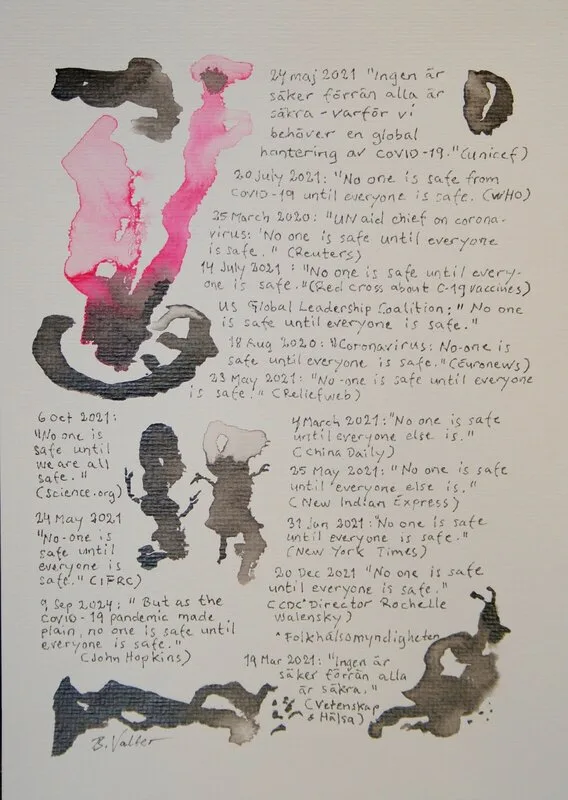 24 maj 2021 "Ingen är
säker förrän alla är
säkra - varför vi
behöver en global
hantering av COVID-19." (unicef)
20 July 2021: "No one is safe from
COVID-19 until everyone is safe. (WHO)
25 March 2020: "UN aid chief on corona-
virus: 'No one is safe until everyone
is safe." (Reuters)
14 July 2021: "No one is safe until every-
one is safe." (Red Cross about C-19 vaccines)
US Global Leadership Coalition: " No one
is safe until everyone is safe."
18 Aug 2020: "Coronavirus: No-one is
safe until everyone is safe." (Euronews)
23 May 2021: "No-one is safe until everyone
is safe." (Reliefweb)
6 Oct 2021:
"No one is
safe until
we are all
safe."
(Science.org)
24 May 2021
"No-one is
safe until
everyone is
safe." (IFRC)
9 Sep 2024: " But as the
COVID-19 pandemic made
plain, no one is safe until
everyone is safe."
(John Hopkins)
4 March 2021: "No one is safe
until everyone else is."
(China Daily)
25 May 2021: "No one is safe
until everyone else is."
(New Indian Express)
31 Jan 2021: "No one is safe
until everyone is safe."
(New York Times)
20 Dec 2021 "No one is safe
until everyone is safe."
(CDC* Director Rochelle
Walensky)
* Folkhälsomyndigheten
19 Mar 2021: "Ingen är
säker förrän alla
är säkra."
(Vetenskap
& Hälsa)
B. Valter